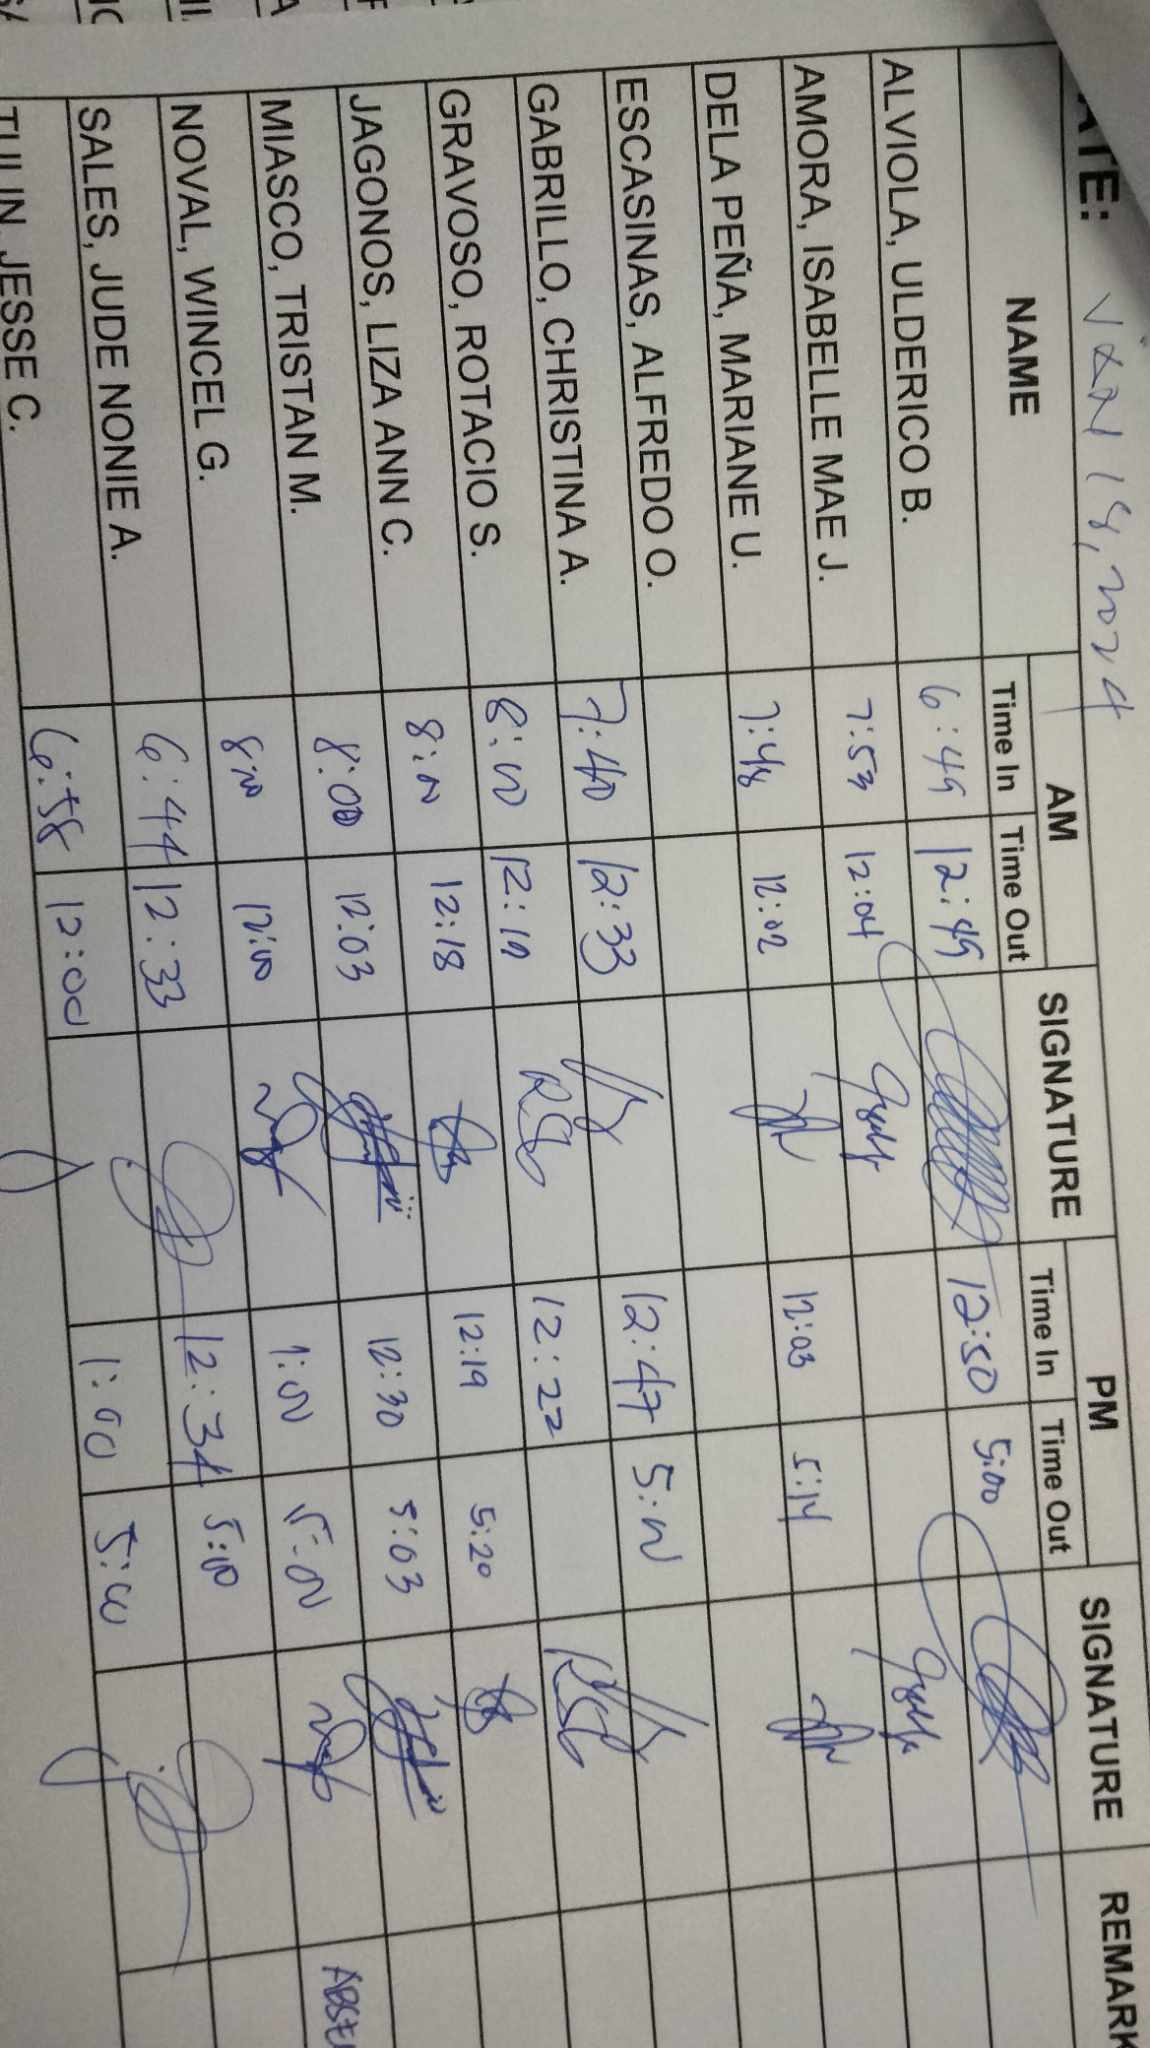 ATE: Jan 18, 2024
NAME AM SIGNATURE PM SIGNATURE REMARK
Time In Time Out Time In Time Out
ALVIOLA, ULDERICO B. 6:49 12:49 12:50 5:00
AMORA, ISABELLE MAE J. 7:53 12:04
DELA PEÑA, MARIANE U. 7:48 12:02 12:03 5:14
ESCASINAS, ALFREDO O.
GABRILLO, CHRISTINA A. 7:40 12:33 12:47 5:00
GRAVOSO, ROTACIO S. 8:00 12:19 RSG 12:22 RSG
JAGONOS, LIZA ANN C. 8:00 12:18 12:19 5:20
MIASCO, TRISTAN M. 8:00 12:03 12:30 5:03
NOVAL, WINCEL G. 8:00 12:00 1:00 5:00 ABSE
SALES, JUDE NONIE A. 6:44 12:33 12:34 5:00
TULIN, JESSE C. 6:58 12:00 1:00 5:00